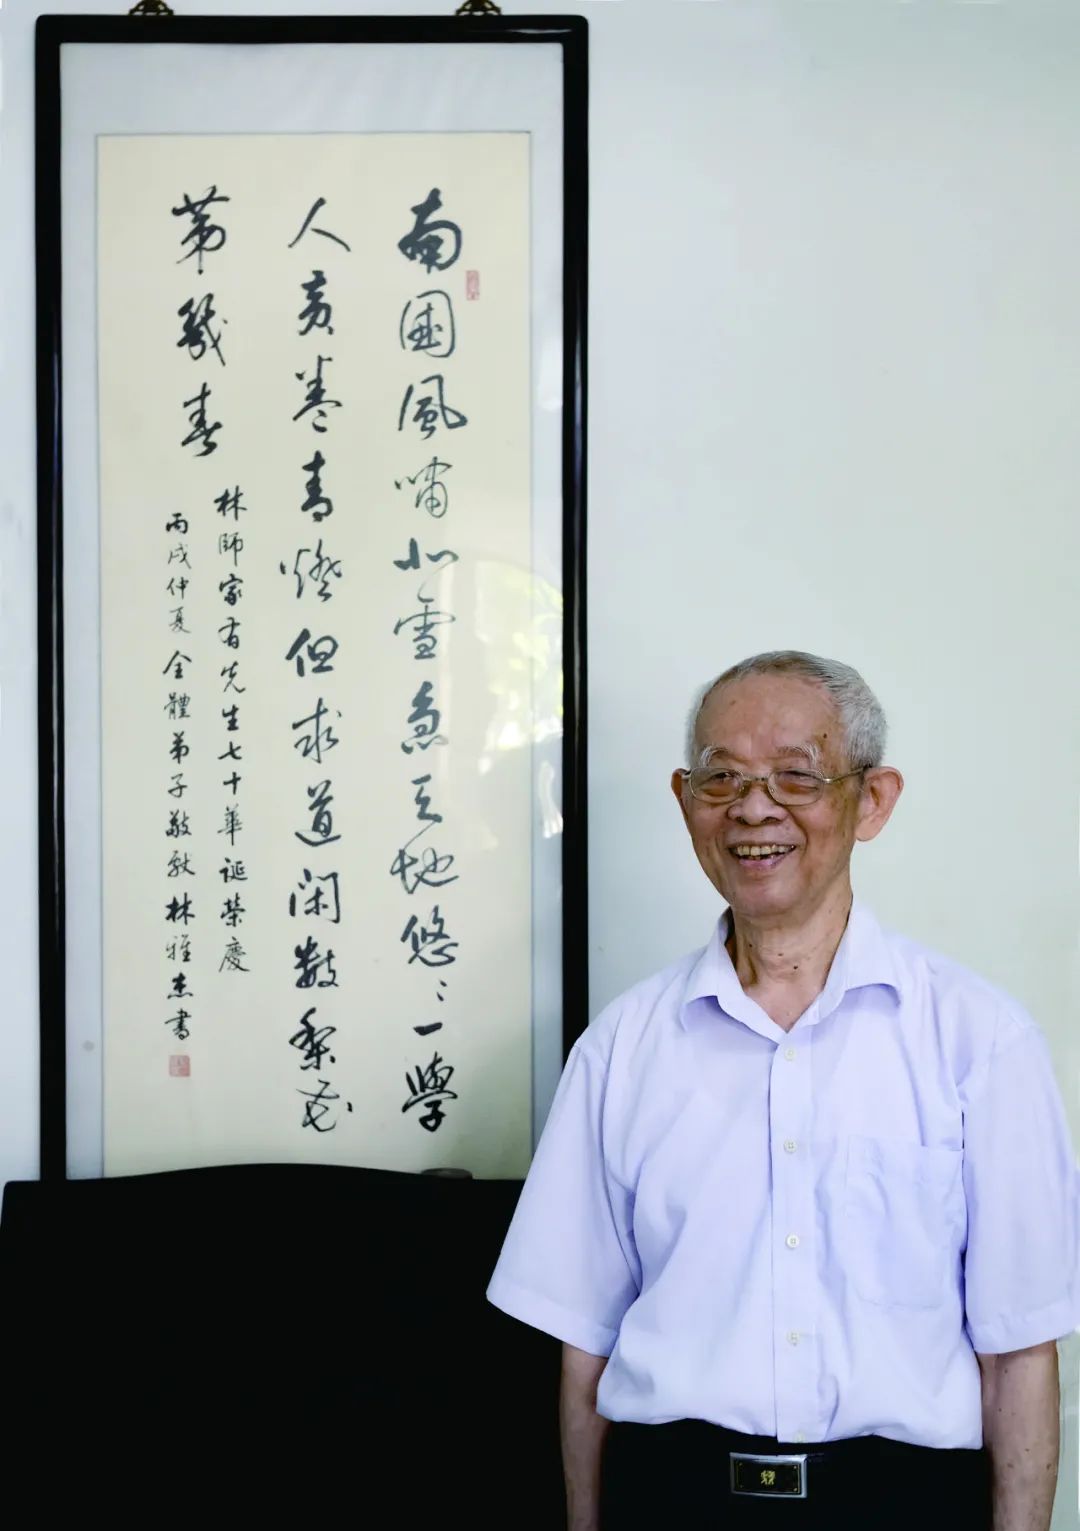 南國風嘯北雪急天地悠〻一學
人黃卷青燈但求道閑數梨花
第幾春
林師家有先生七十華誕榮慶
丙戌仲夏全體弟子敬獻林雅杰書